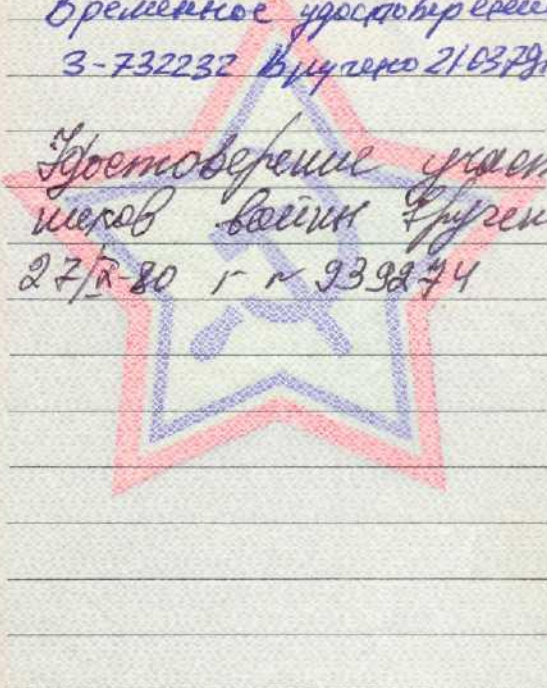 Временное удостоверение
З-732232 Вручено 210379г
Удостоверение участ
ников войны вручен
27/IX-80 г № 939274